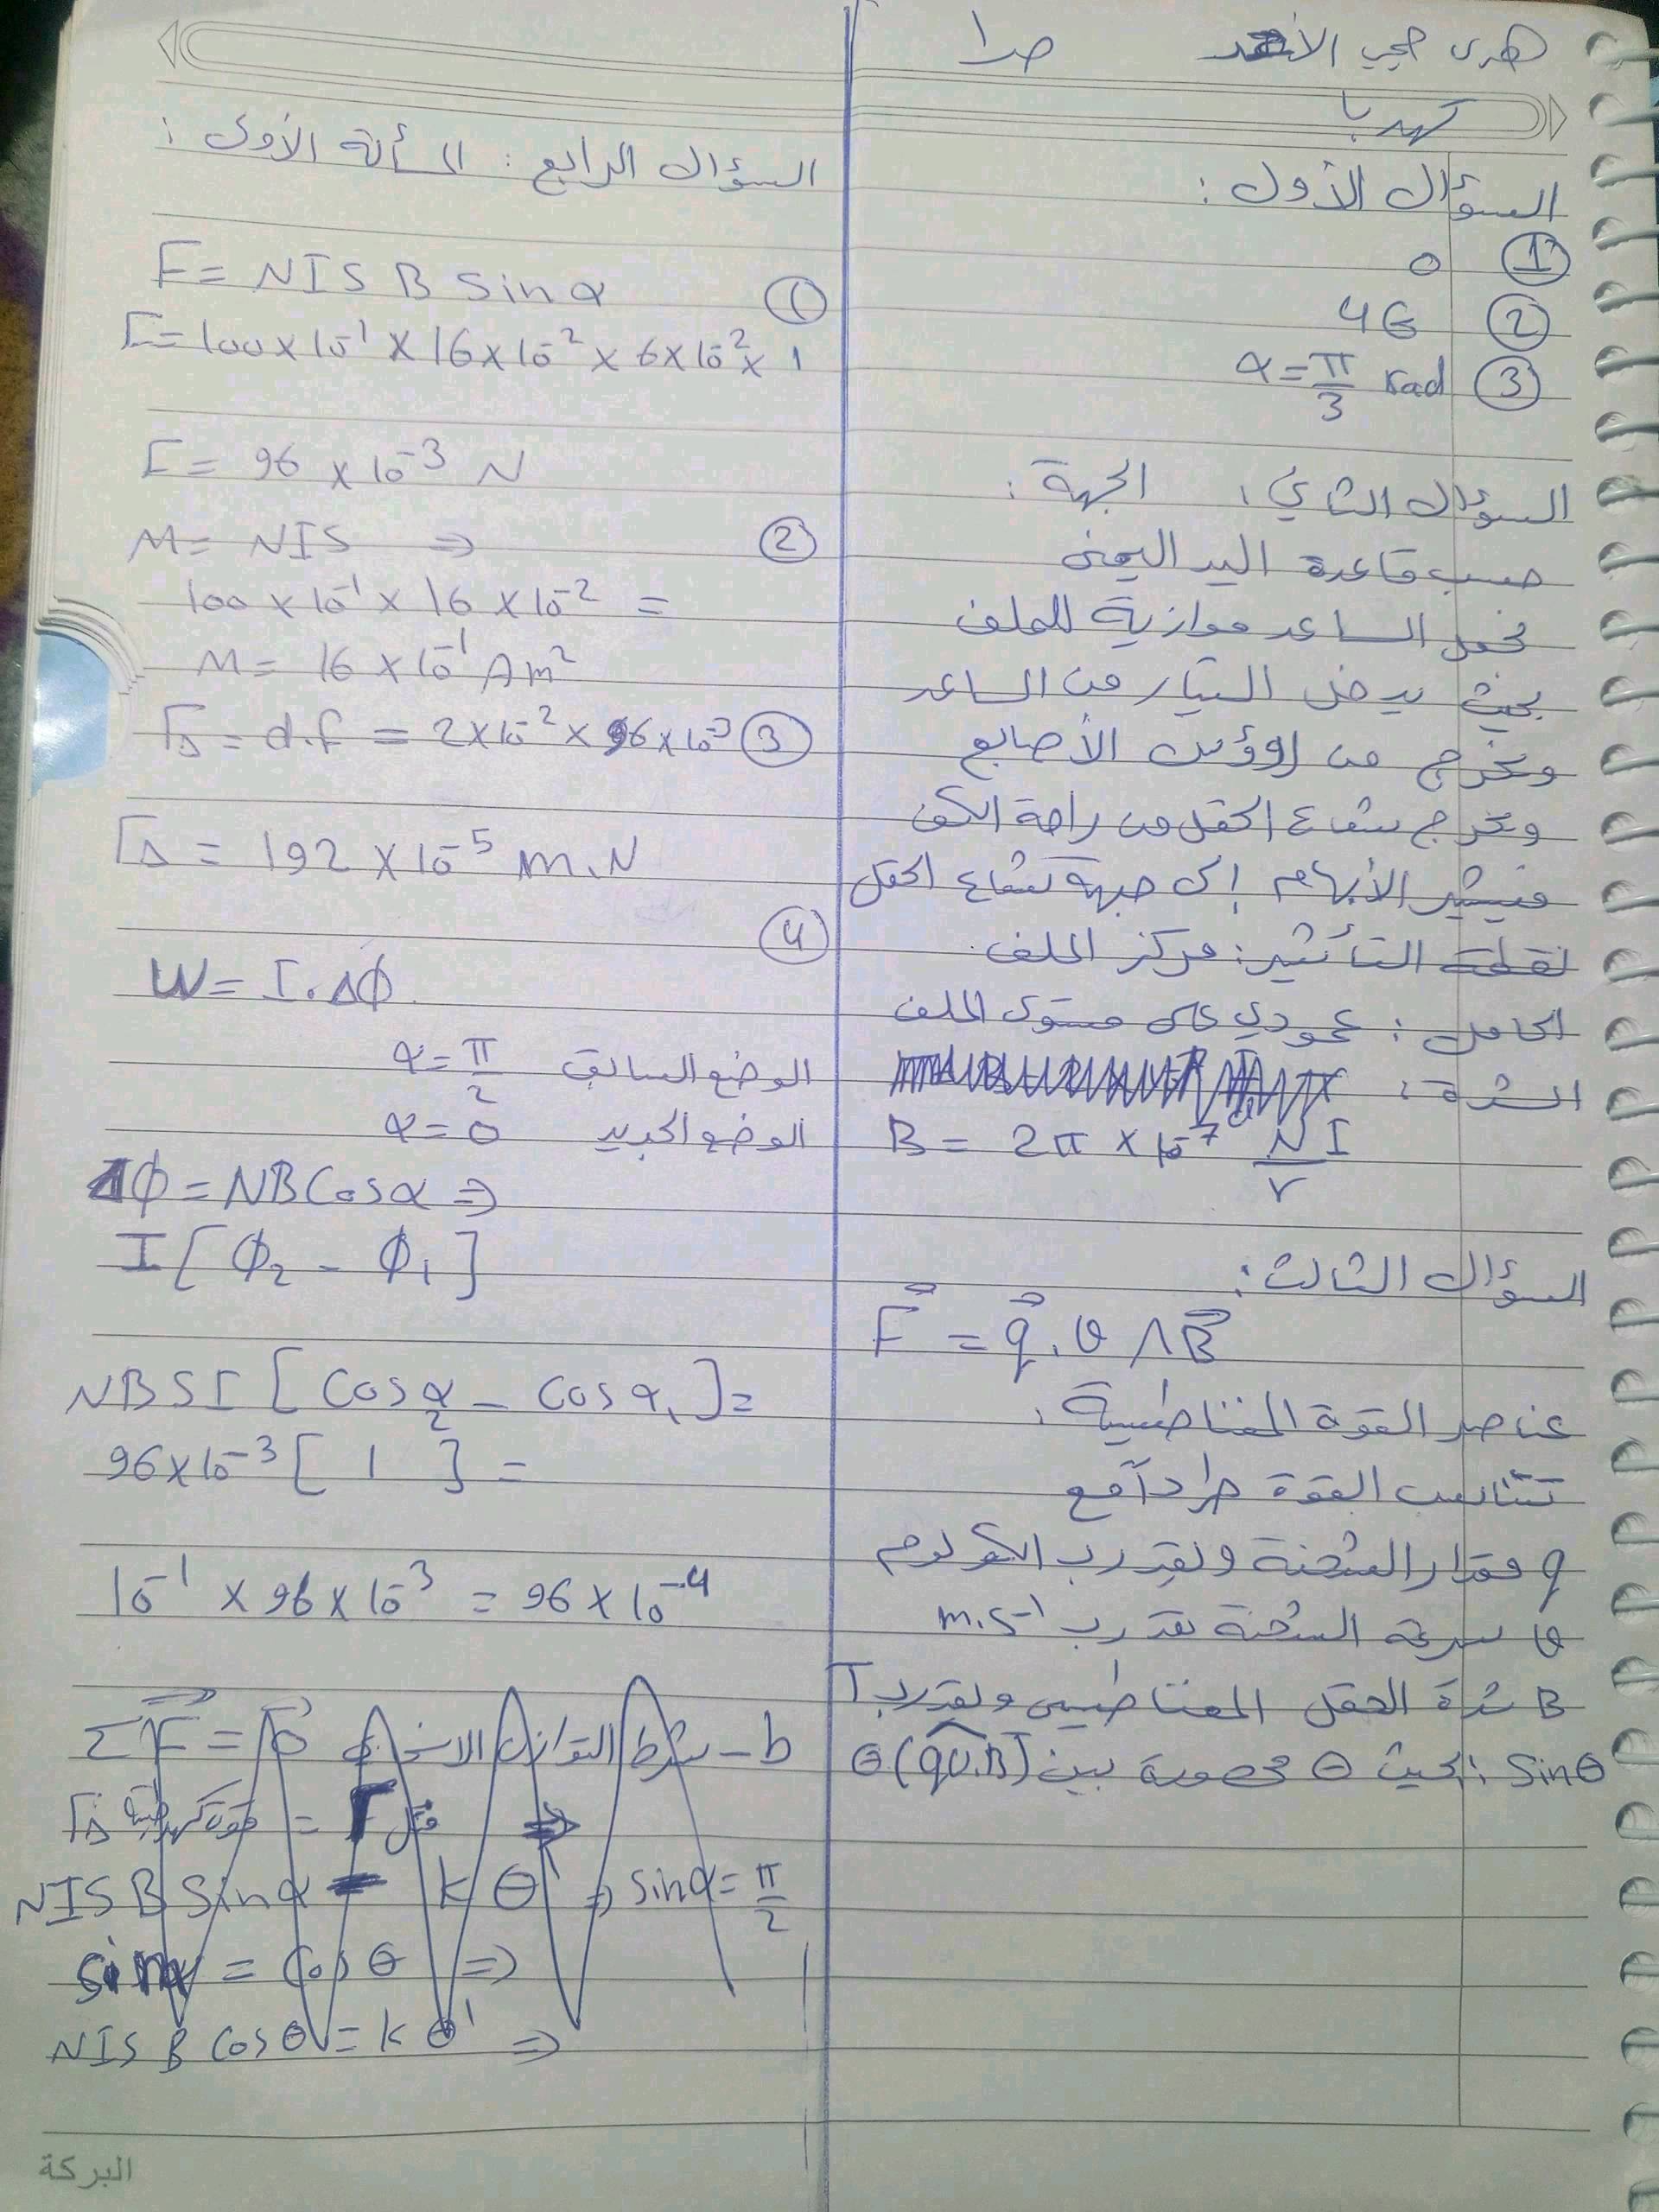 هدى حجي الأحمد
ص1
كهربا
السؤال الأول :
① 0
② 4G
③ α = π/3 rad
السؤال الثاني : الجهة :
حسب قاعدة اليد اليمنى
نجعل الساعد موازية للملف
بحيث يدخل التيار من الساعد
ويخرج من رؤوس الأصابع
ونخرج شعاع الحقل من راحة الكف
فيشير الأبهام إلى جهة شعاع الحقل
نقطة التأثير : مركز الملف
الحامل : عمودي على مستوى الملف
الشدة :
B = 2π × 10⁻⁷ NI/r
السؤال الثالث :
F⃗ = q⃗.υ ∧ B⃗
عناصر القوة المغناطيسية :
تتناسب القوة طرداً مع
q مقدار الشحنة وتقدر ب الكولوم
υ سرعة الشحنة تقدر ب m.s⁻¹
B شدة الحقل المغناطيسي وتقدر ب T
sinθ : بحيث θ محصورة بين θ(qυ.B)
السؤال الرابع : المسألة الأولى :
① F = NISB sinα
Γ = 100 × 10⁻¹ × 16 × 10⁻² × 6 × 10⁻² × 1
Γ = 96 × 10⁻³ N
② M = NIS ⇒
100 × 10⁻¹ × 16 × 10⁻² =
M = 16 × 10⁻¹ Am²
③ ΓΔ = d.f = 2 × 10⁻² × 96 × 10⁻³
ΓΔ = 192 × 10⁻⁵ m.N
④
W = I.Δϕ
الوضع السابق α = π/2
الوضع الجديد α = 0
Δϕ = NBCosα ⇒
I[ϕ₂ - ϕ₁]
NBSI [Cosα₂ - Cosα₁] =
96 × 10⁻³ [ 1 ] =
10⁻¹ × 96 × 10⁻³ = 96 × 10⁻⁴
b - شرط التوازن ΣF⃗ = 0⃗
NISB Sinα = kθ' ⇒ Sinα = π/2
sinα = Cosθ ⇒
NISB Cosθ = kθ' ⇒
البركة